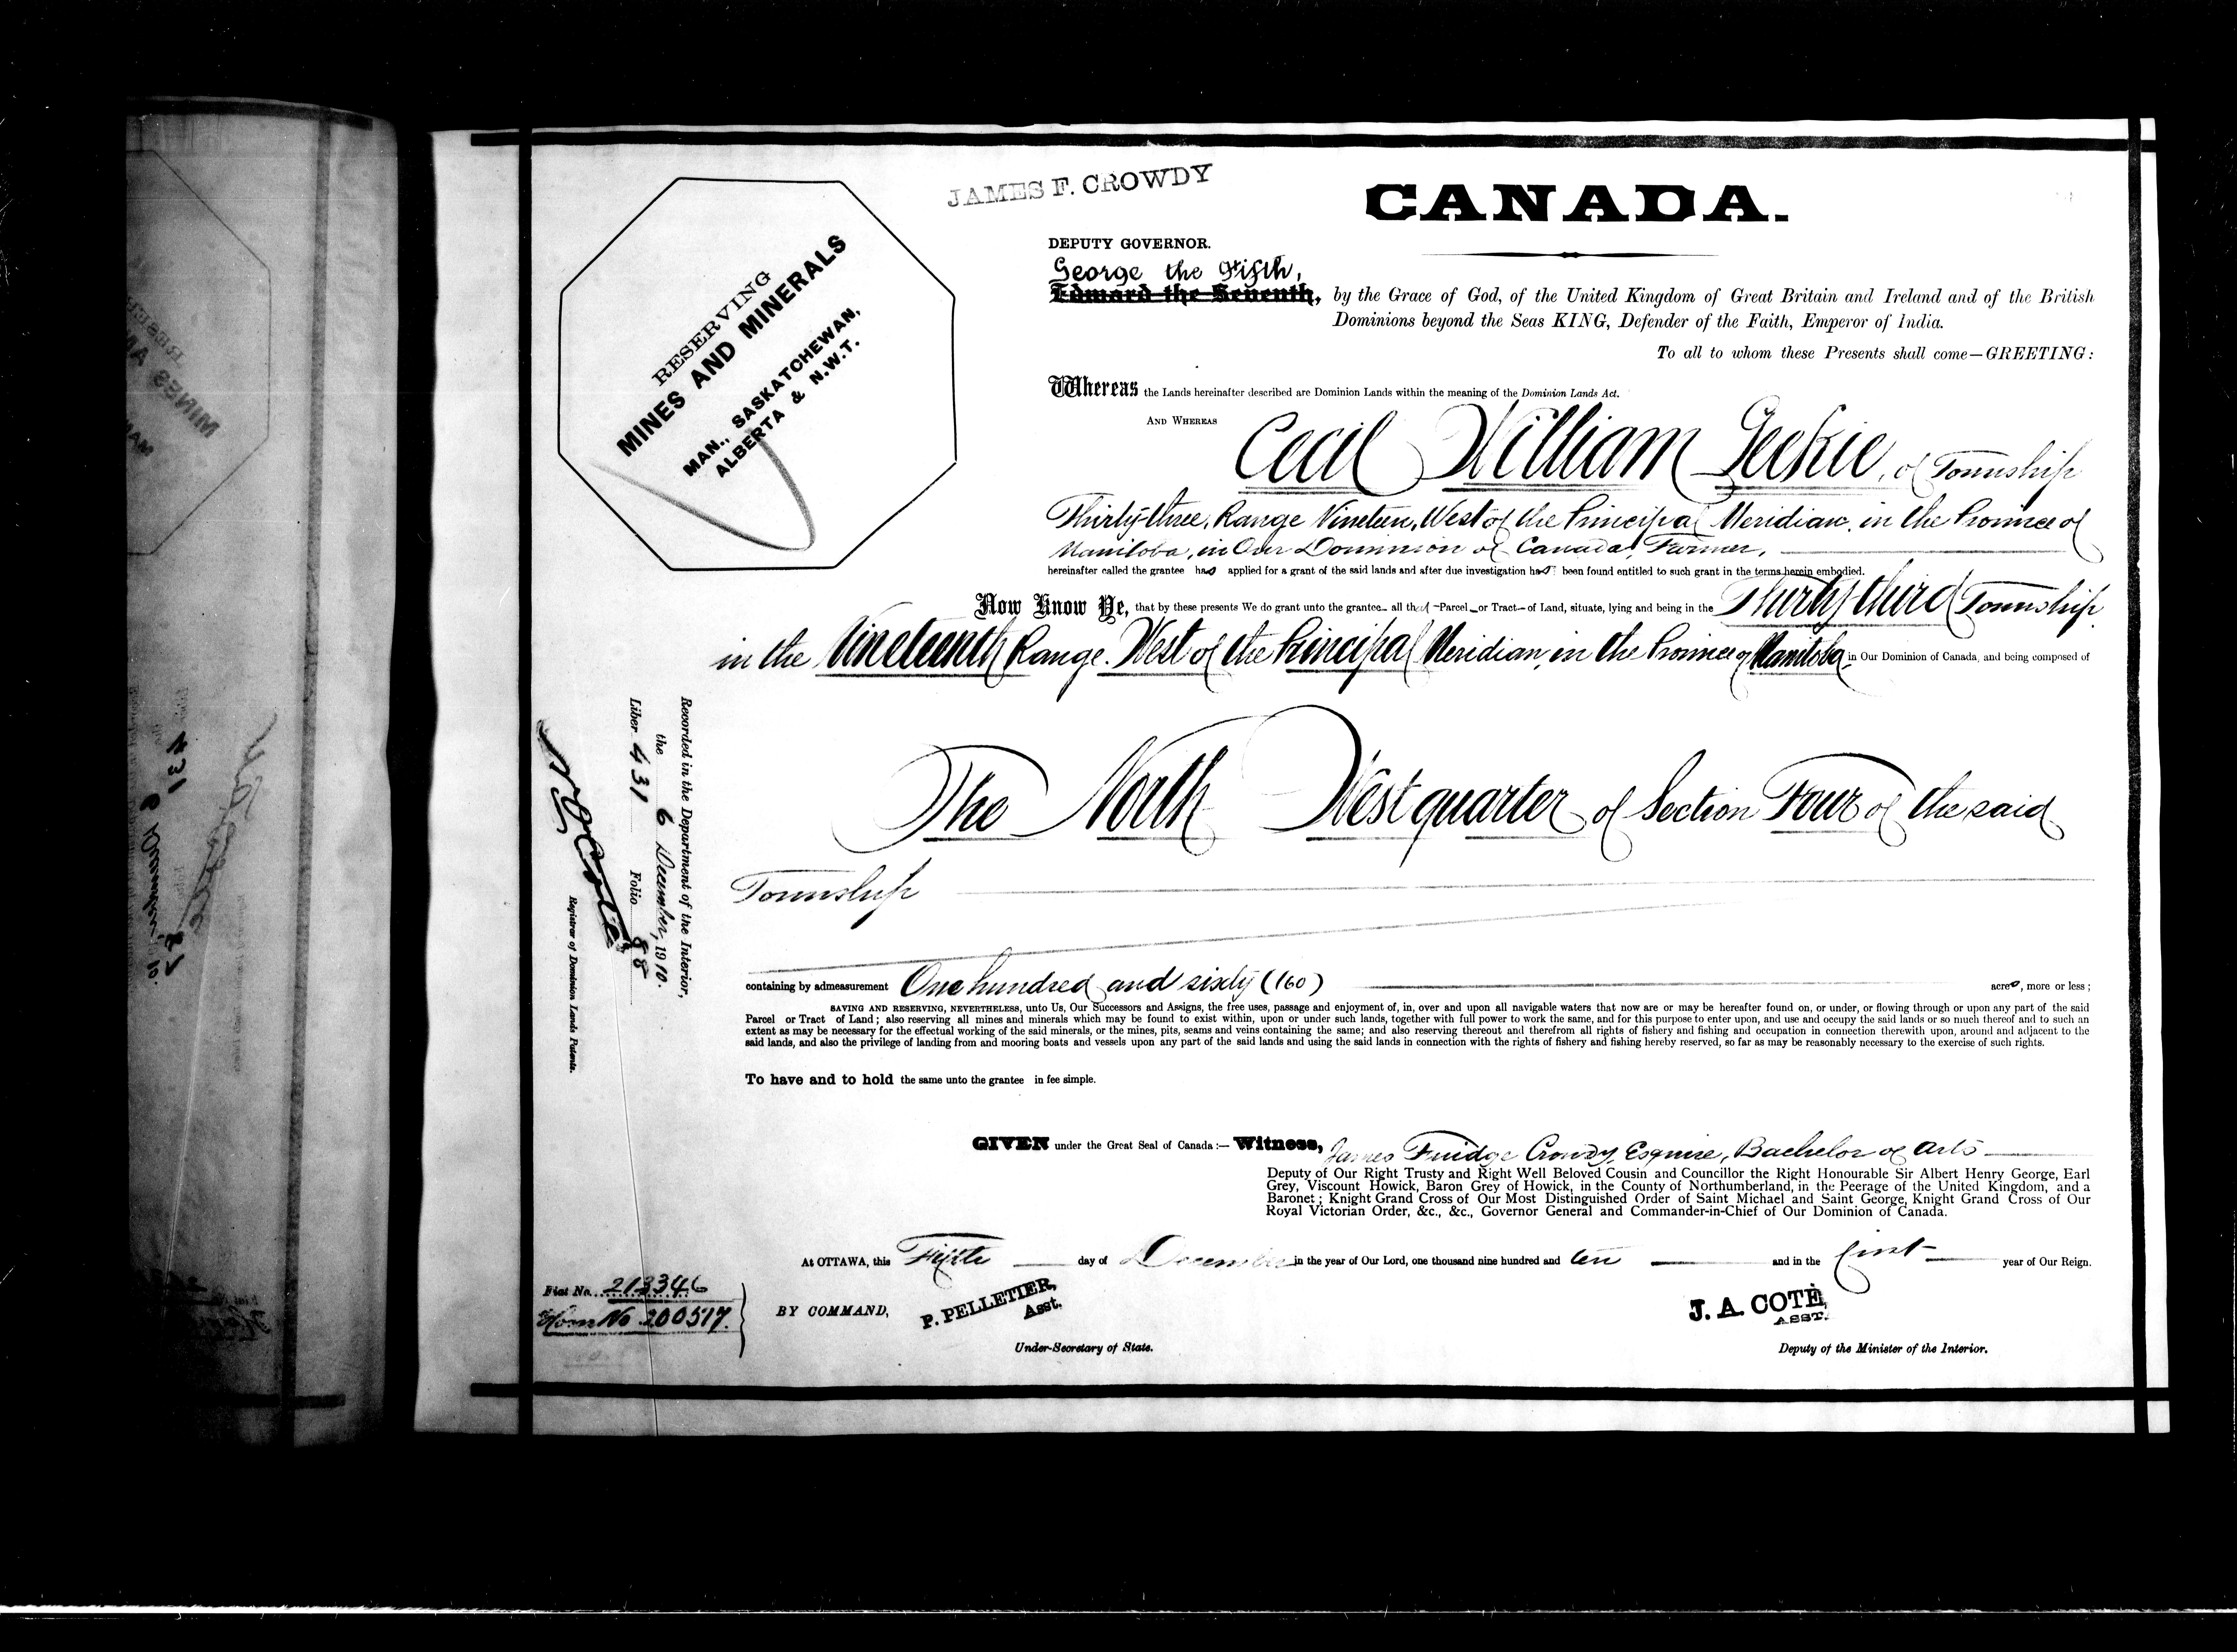 JAMES F. CROWDY
CANADA.
DEPUTY GOVERNOR.
George the Fifth,
Edward the Seventh, by the Grace of God, of the United Kingdom of Great Britain and Ireland and of the British
Dominions beyond the Seas KING, Defender of the Faith, Emperor of India.
To all to whom these Presents shall come—GREETING:
RESERVING
MINES AND MINERALS
MAN., SASKATCHEWAN,
ALBERTA & N.W.T.
Whereas the Lands hereinafter described are Dominion Lands within the meaning of the Dominion Lands Act.
AND WHEREAS Cecil William Geekie, of Township
Thirty-three, Range Nineteen, West of the Principal Meridian, in the Province of
Manitoba, in Our Dominion of Canada, Farmer,
hereinafter called the grantee has applied for a grant of the said lands and after due investigation has been found entitled to such grant in the terms herein embodied.
Now Know Ye, that by these presents We do grant unto the grantee all that Parcel or Tract of Land, situate, lying and being in the Thirty-third Township
in the Nineteenth Range. West of the Principal Meridian, in the Province of Manitoba in Our Dominion of Canada, and being composed of
The North West quarter of Section Four of the said
Township
containing by admeasurement One hundred and sixty (160) acres, more or less;
SAVING AND RESERVING, NEVERTHELESS, unto Us, Our Successors and Assigns, the free uses, passage and enjoyment of, in, over and upon all navigable waters that now are or may be hereafter found on, or under, or flowing through or upon any part of the said
Parcel or Tract of Land; also reserving all mines and minerals which may be found to exist within, upon or under such lands, together with full power to work the same, and for this purpose to enter upon, and use and occupy the said lands or so much thereof and to such an
extent as may be necessary for the effectual working of the said minerals, or the mines, pits, seams and veins containing the same; and also reserving thereout and therefrom all rights of fishery and fishing and occupation in connection therewith upon, around and adjacent to the
said lands, and also the privilege of landing from and mooring boats and vessels upon any part of the said lands and using the said lands in connection with the rights of fishery and fishing hereby reserved, so far as may be reasonably necessary to the exercise of such rights.
To have and to hold the same unto the grantee in fee simple.
GIVEN under the Great Seal of Canada:— Witness, James Fuidge Crowdy, Esquire, Bachelor of Arts
Deputy of Our Right Trusty and Right Well Beloved Cousin and Councillor the Right Honourable Sir Albert Henry George, Earl
Grey, Viscount Howick, Baron Grey of Howick, in the County of Northumberland, in the Peerage of the United Kingdom, and a
Baronet; Knight Grand Cross of Our Most Distinguished Order of Saint Michael and Saint George, Knight Grand Cross of Our
Royal Victorian Order, &c., &c., Governor General and Commander-in-Chief of Our Dominion of Canada.
At OTTAWA, this Fifth day of December in the year of Our Lord, one thousand nine hundred and ten and in the first year of Our Reign.
BY COMMAND,
P. PELLETIER,
Asst.
Under-Secretary of State.
J. A. COTÉ,
ASST.
Deputy of the Minister of the Interior.
Recorded in the Department of the Interior,
the 6 December, 1910.
Liber 431 Folio 88
Registrar of Dominion Lands Patents.
Fiat No. 213346
Hom No 200517.